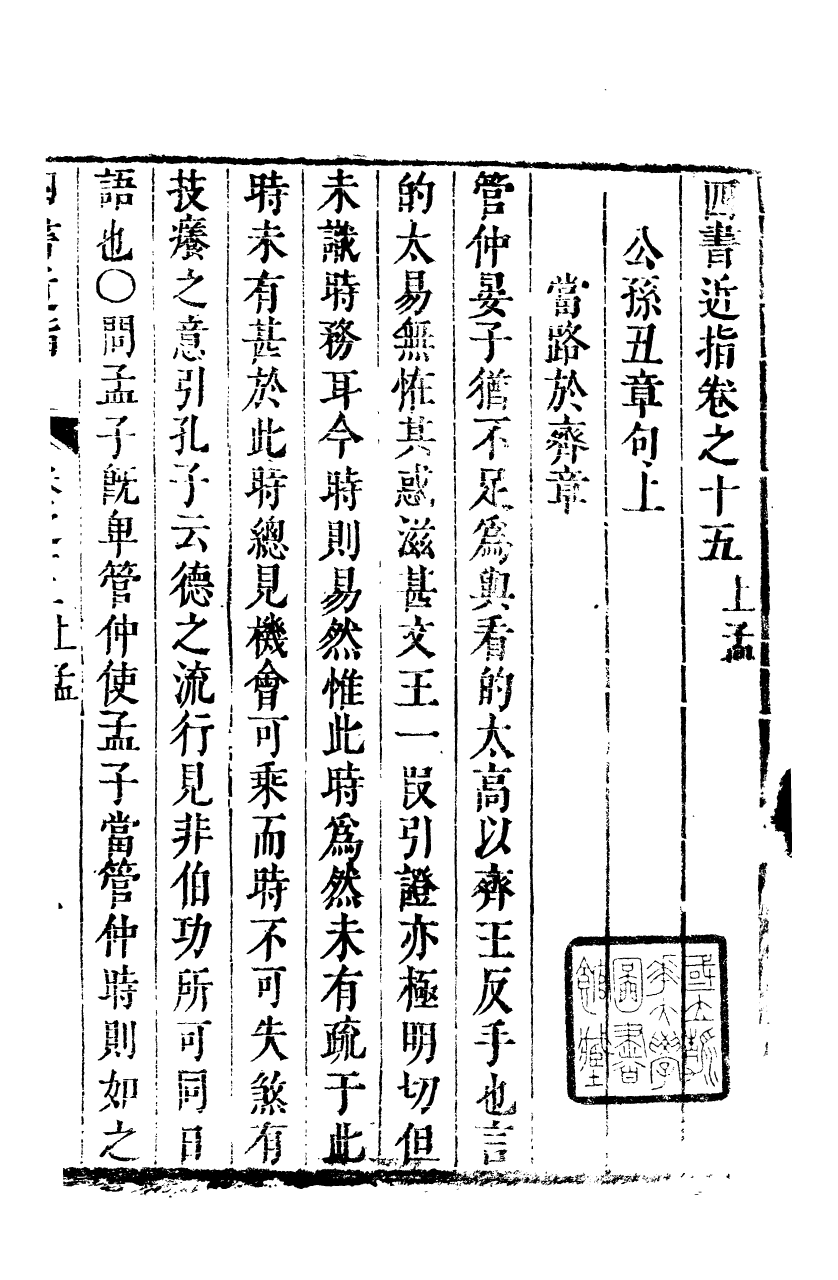 四書近指卷之十五 上孟
公孫丑章句上
當路於齊章
管仲晏子猶不足爲與看的太高以齊王反手也言
的太易無怪其惑滋甚文王一叚引證亦極明切但
未識時務耳今時則易然惟此時爲然未有疏于此
時未有甚於此時總見機會可乘而時不可失煞有
技癢之意引孔子云德之流行見非伯功所可同日
語也〇問孟子旣卑管仲使孟子當管仲時則如之
四書近指 卷之十五 上孟
國立清華大學圖書館藏